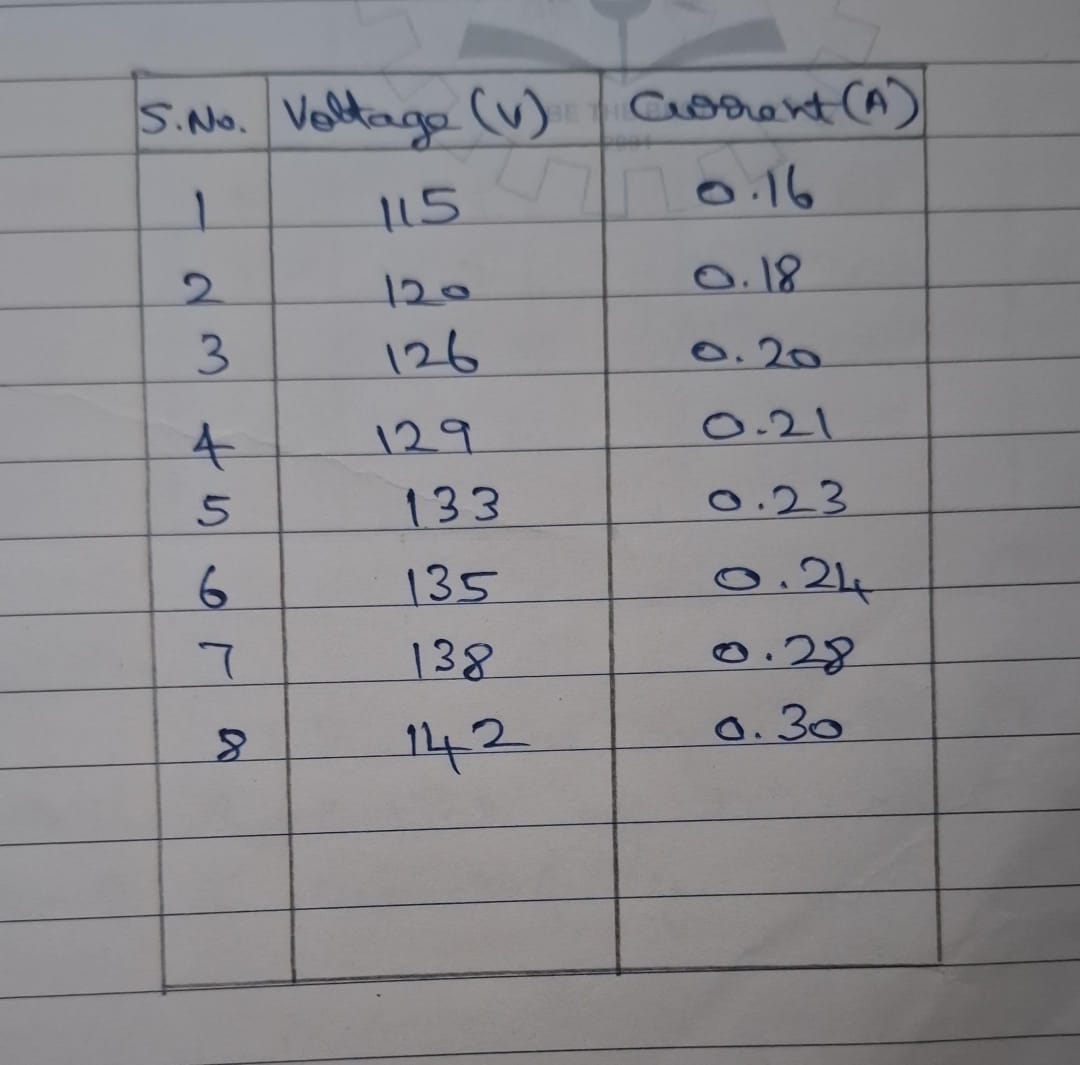 S.No. Voltage (V) Current (A)
1 115 0.16
2 120 0.18
3 126 0.20
4 129 0.21
5 133 0.23
6 135 0.24
7 138 0.28
8 142 0.30